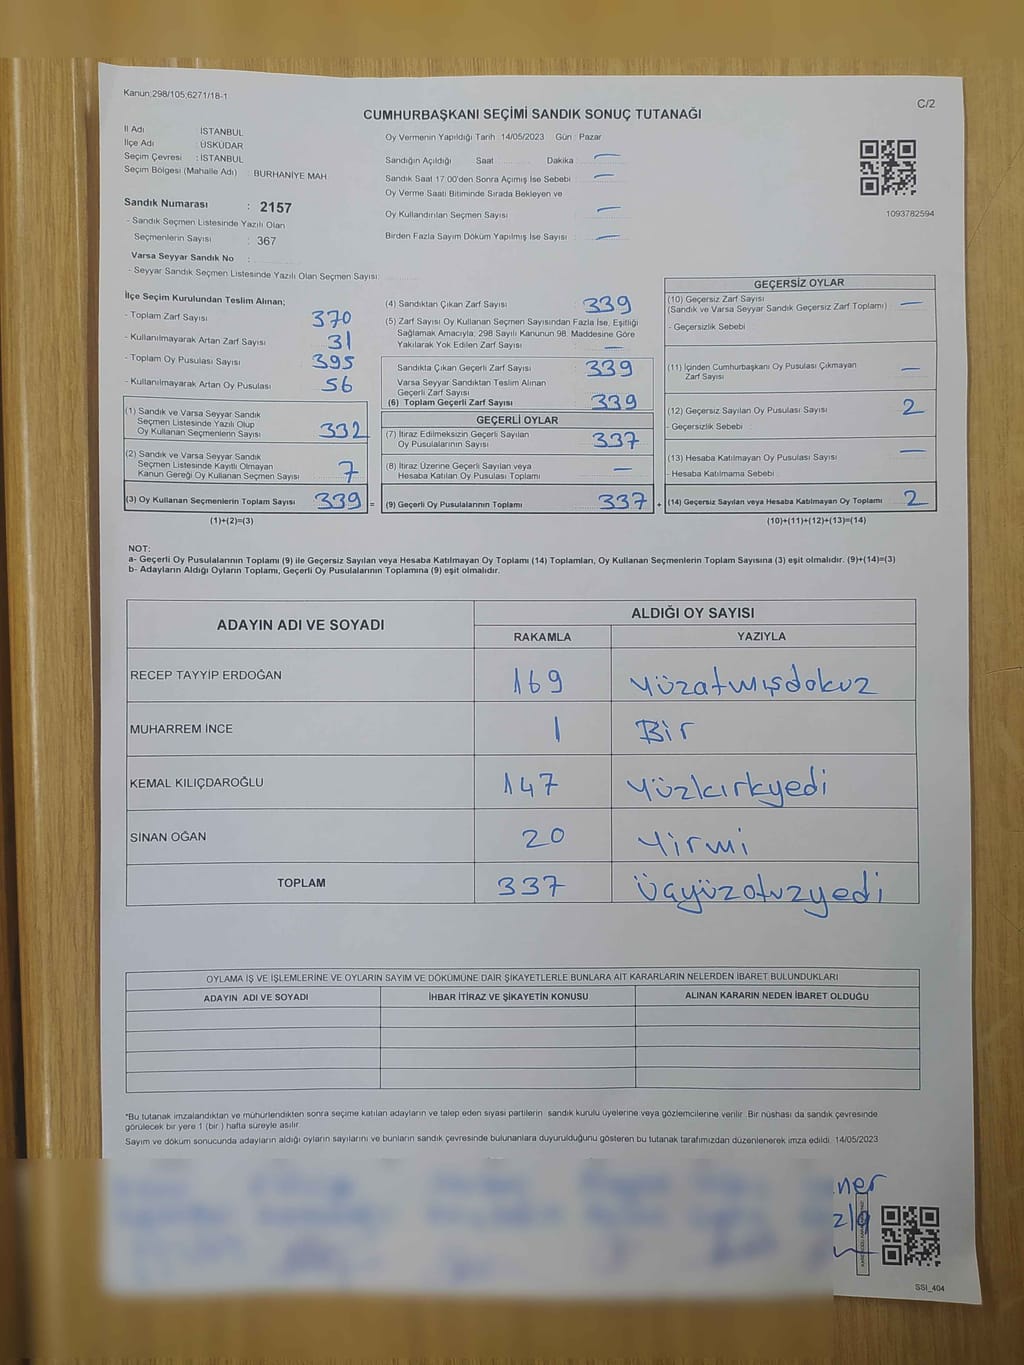 Kanun;298/105;6271/18-1
C/2
CUMHURBAŞKANI SEÇİMİ SANDIK SONUÇ TUTANAĞI
İl Adı : İSTANBUL
İlçe Adı : ÜSKÜDAR
Seçim Çevresi : İSTANBUL
Seçim Bölgesi (Mahalle Adı) : BURHANİYE MAH.
Sandık Numarası : 2157
- Sandık Seçmen Listesinde Yazılı Olan
Seçmenlerin Sayısı : 367
Varsa Seyyar Sandık No :
- Seyyar Sandık Seçmen Listesinde Yazılı Olan Seçmen Sayısı:
Oy Vermenin Yapıldığı Tarih :14/05/2023 Gün : Pazar
Sandığın Açıldığı Saat Dakika : —
Sandık Saat 17:00'den Sonra Açımış İse Sebebi : —
Oy Verme Saati Bitiminde Sırada Bekleyen ve
Oy Kullandırılan Seçmen Sayısı : —
Birden Fazla Sayım Döküm Yapılmış İse Sayısı : —
1093782594
İlçe Seçim Kurulundan Teslim Alınan;
- Toplam Zarf Sayısı : 370
- Kullanılmayarak Artan Zarf Sayısı : 31
- Toplam Oy Pusulası Sayısı : 395
- Kullanılmayarak Artan Oy Pusulası : 56
(1) Sandık ve Varsa Seyyar Sandık
Seçmen Listesinde Yazılı Olup
Oy Kullanan Seçmenlerin Sayısı : 332
(2) Sandık ve Varsa Seyyar Sandık
Seçmen Listesinde Kayıtlı Olmayan
Kanun Gereği Oy Kullanan Seçmen Sayısı : 7
(3) Oy Kullanan Seçmenlerin Toplam Sayısı : 339 =
(1)+(2)=(3)
(4) Sandıktan Çıkan Zarf Sayısı : 339
(5) Zarf Sayısı Oy Kullanan Seçmen Sayısından Fazla İse, Eşitliği
Sağlamak Amacıyla; 298 Sayılı Kanunun 98. Maddesine Göre
Yakılarak Yok Edilen Zarf Sayısı : —
Sandıkta Çıkan Geçerli Zarf Sayısı : 339
Varsa Seyyar Sandıktan Teslim Alınan
Geçerli Zarf Sayısı :
(6) Toplam Geçerli Zarf Sayısı : 339
GEÇERLİ OYLAR
(7) İtiraz Edilmeksizin Geçerli Sayılan
Oy Pusulalarının Sayısı : 337
(8) İtiraz Üzerine Geçerli Sayılan veya
Hesaba Katılan Oy Pusulası Toplamı : —
(9) Geçerli Oy Pusulalarının Toplamı : 337 +
GEÇERSİZ OYLAR
(10) Geçersiz Zarf Sayısı : —
(Sandık ve Varsa Seyyar Sandık Geçersiz Zarf Toplamı)
- Geçersizlik Sebebi :
(11) İçinden Cumhurbaşkanı Oy Pusulası Çıkmayan
Zarf Sayısı : —
(12) Geçersiz Sayılan Oy Pusulası Sayısı : 2
- Geçersizlik Sebebi :
(13) Hesaba Katılmayan Oy Pusulası Sayısı : —
- Hesaba Katılmama Sebebi :
(14) Geçersiz Sayılan veya Hesaba Katılmayan Oy Toplamı : 2
(10)+(11)+(12)+(13)=(14)
NOT:
a- Geçerli Oy Pusulalarının Toplamı (9) ile Geçersiz Sayılan veya Hesaba Katılmayan Oy Toplamı (14) Toplamları, Oy Kullanan Seçmenlerin Toplam Sayısına (3) eşit olmalıdır. (9)+(14)=(3)
b- Adayların Aldığı Oyların Toplamı, Geçerli Oy Pusulalarının Toplamına (9) eşit olmalıdır.
ADAYIN ADI VE SOYADI
ALDIĞI OY SAYISI
RAKAMLA YAZIYLA
RECEP TAYYİP ERDOĞAN 169 Yüzatmışdokuz
MUHARREM İNCE 1 Bir
KEMAL KILIÇDAROĞLU 147 Yüzkırkyedi
SİNAN OĞAN 20 Yirmi
TOPLAM 337 Üçyüzotuzyedi
OYLAMA İŞ VE İŞLEMLERİNE VE OYLARIN SAYIM VE DÖKÜMÜNE DAİR ŞİKAYETLERLE BUNLARA AİT KARARLARIN NELERDEN İBARET BULUNDUKLARI
ADAYIN ADI VE SOYADI İHBAR İTİRAZ VE ŞİKAYETİN KONUSU ALINAN KARARIN NEDEN İBARET OLDUĞU
*Bu tutanak imzalandıktan ve mühürlendikten sonra seçime katılan adayların ve talep eden siyasi partilerin sandık kurulu üyelerine veya gözlemcilerine verilir. Bir nüshası da sandık çevresinde
görülecek bir yere 1 (bir ) hafta süreyle asılır.
Sayım ve döküm sonucunda adayların aldığı oyların sayılarını ve bunların sandık çevresinde bulunanlara duyurulduğunu gösteren bu tutanak tarafımızdan düzenlenerek imza edildi. 14/05/2023
ner
zlg
SSI_404